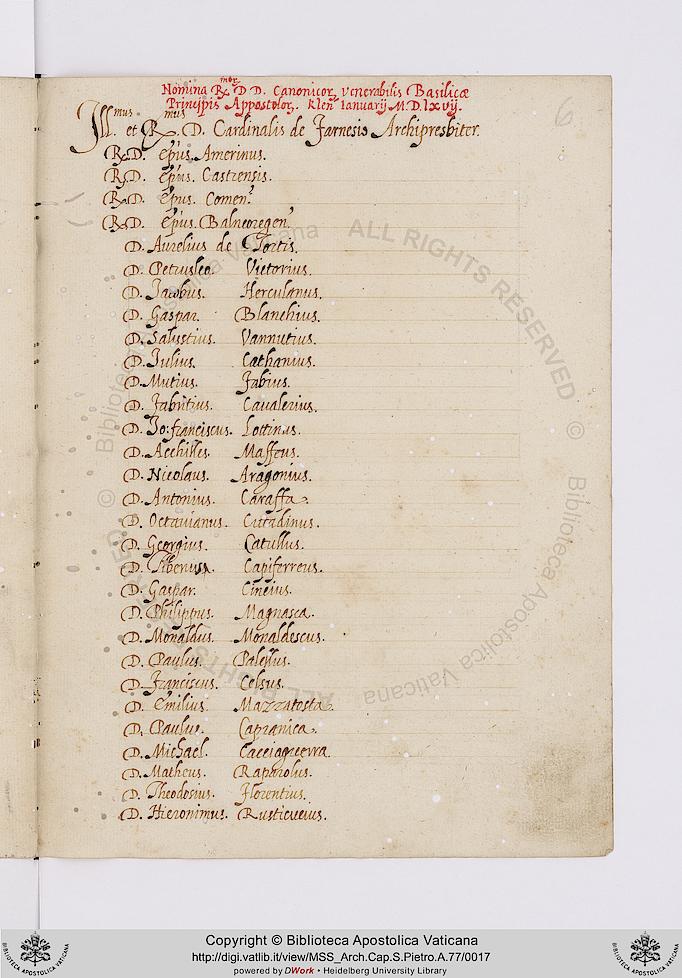 Nomina R.morr D D. Canonicor. venerabilis Basilicæ
Principis Appostolor. klen̄ Ianuarij M.D.lxvij.
Ill.mus et R.mus D. Cardinalis de Farnesis Archipresbiter.
R.D. ep̄us. Amerinus.
R.D. ep̄us. Castrensis.
R.D. ep̄us. Comen̄.
R.D. ep̄us. Balneoregen̄.
D. Aurelius de Tortis.
D. Petrusleo. Victorius.
D. Iacobus. Herculanus.
D. Gaspar. Blanchius.
D. Salustius. Vannutius.
D. Iulius. Cathanius.
D. Mutius. Fabius.
D. Fabritius. Cavalerius.
D. Io: franciscus. Lottinus.
D. Acchilles. Maffeus.
D. Nicolaus. Aragonius.
D. Antonius. Caraffa.
D. Octavianus. Cittadinus.
D. Georgius. Catullus.
D. Tiberius. Capiferreus.
D. Gaspar. Cincius.
D. Philippus. Magnasca.
D. Monaldus. Monaldescus.
D. Paulus. Palellus.
D. Franciscus. Celsus.
D. Emilius. Mazzatosta.
D. Paulus. Capranica.
D. Michael. Cacciaguerra.
D. Matheus. Raparolus.
D. Theodosius. Florentius.
D. Hieronimus. Rusticucius.
6
© Biblioteca Apostolica Vaticana ALL RIGHTS RESERVED
© Biblioteca Apostolica Vaticana ALL RIGHTS RESERVED
Copyright © Biblioteca Apostolica Vaticana
http://digi.vatlib.it/view/MSS_Arch.Cap.S.Pietro.A.77/0017
powered by DWork • Heidelberg University Library
BIBLIOTECA APOSTOLICA VATICANA
BIBLIOTECA APOSTOLICA VATICANA